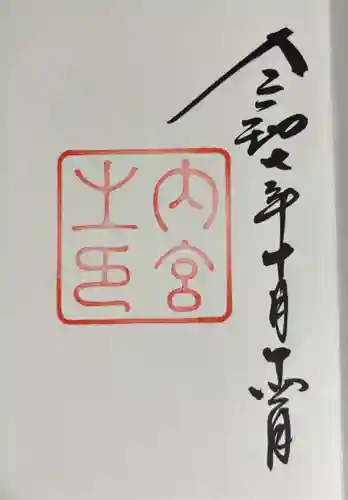 令和七年十月十四日
内宮
之印